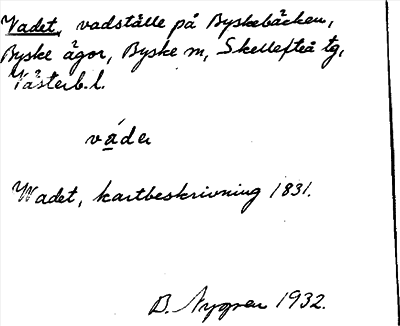 Vadet, vadställe på Byskebäcken,
Byske ägor, Byske m, Skellefteå tg,
Västerb. l.
vá̱der
Wadet, kartbeskrivning 1831.
B. Nygren 1932.